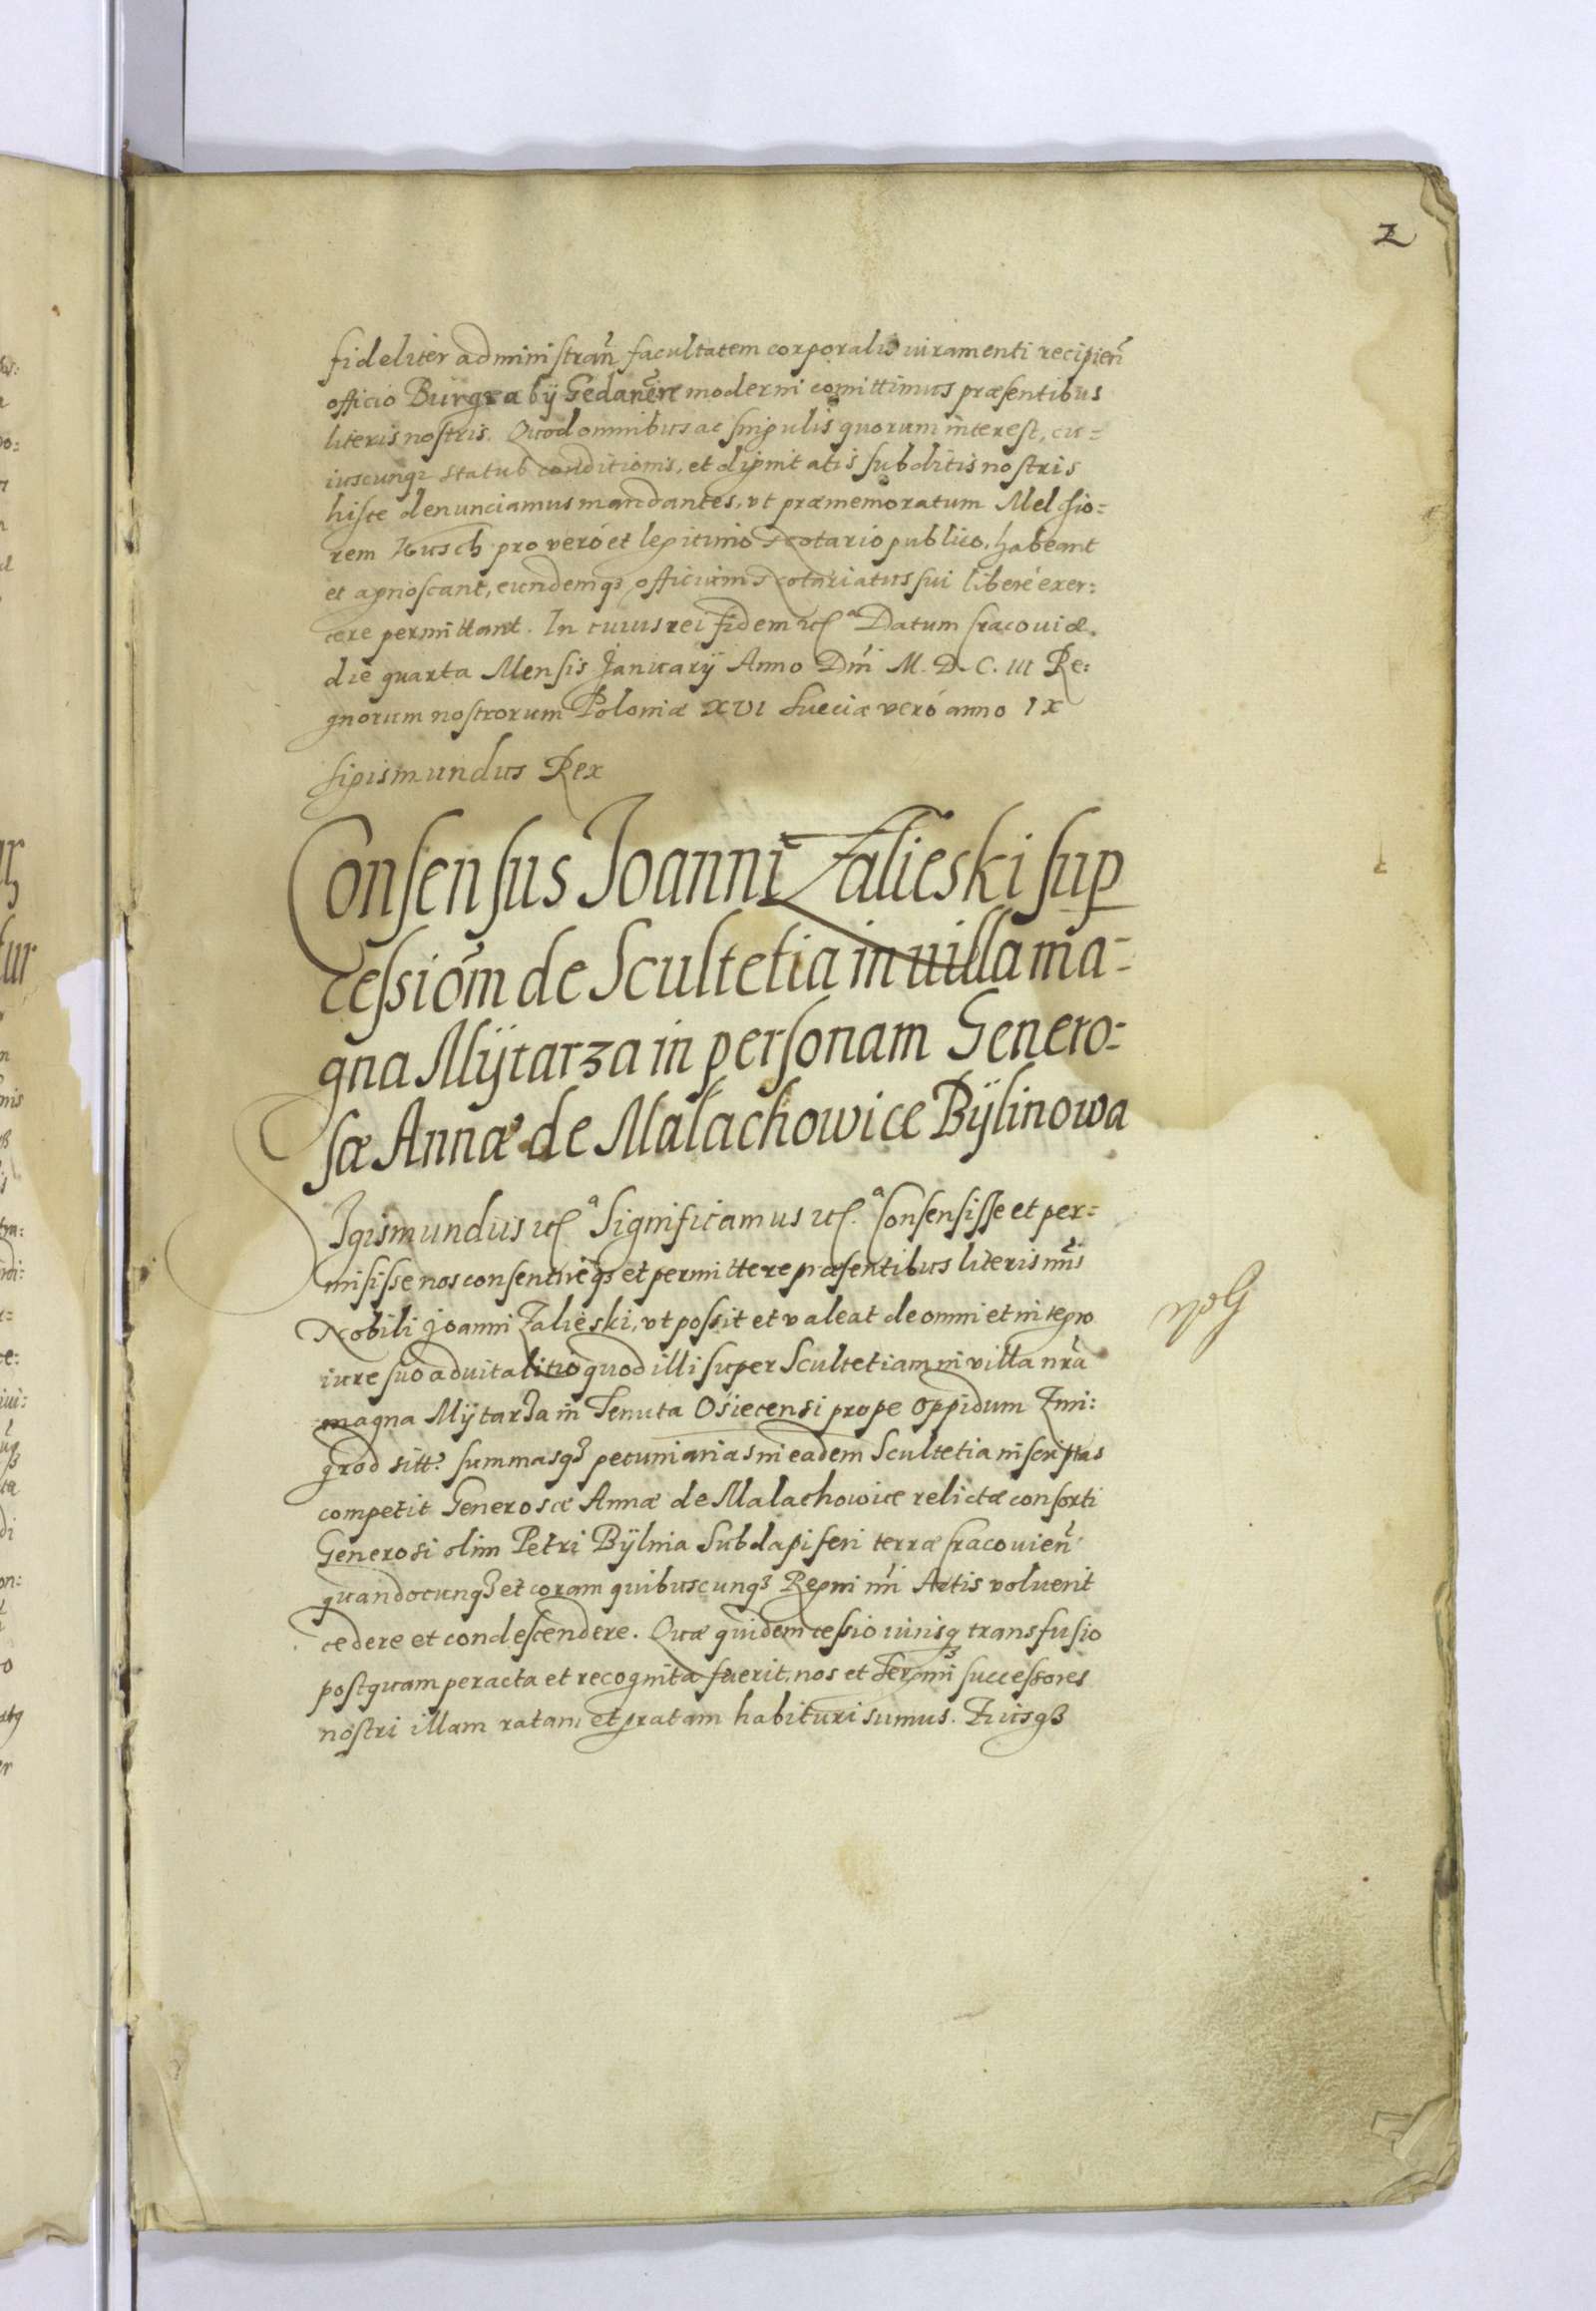 2
fideliter administrañ facultatem corporalis iuramenti recipieñ
officio Burgrabÿ Gedanẽn moderni com̃ittimus præsentibus
literis nostris. Quod omnibus ac singulis quorum interest, cu=
iuscunqꝫ status conditionis, et dignitatis subditis nostris
hisce denunciamus mandantes, vt præmemoratum Melchio=
rem Rusch pro veró et legitimo Notario publico, habeant
et agnoscant, eundemqꝫ officium Notariatus sui liberé exer:
cere permittant. In cuius rei fidem etcª Datum Cracouiæ.
die quarta Mensis Januarÿ Anno Dñi M. D. C. III Re:
gnorum nostrorum Poloniæ XVI Sueciæ veró anno IX
Sigismundus Rex
Consensus Joanni Zalieski sup
cessiõm de Scultetia in uilla ma=
gna Mÿtarza in personam Genero=
sæ Annæ de Malachowice Bÿlinowa
Sigismundus etcª Significamus etc.ª Consensisse et per=
misisse nos consentireqꝫ et permittere præsentibus literis nr̃is
Nobili Joanni Zalieski, vt possit et valeat de omni et integro
iure suo aduitalitio quod illi super Scultetiam in villa nrã
magna Mÿtarza in Tenuta Osiecensi prope oppidum Zmi:
grod sitt? summasqꝫ pecuniarias in eadem Scultetia inscriptas
competit Generosæ Annæ de Malachowice relictæ consorti
Generosi olim Petri Bÿlina Subdapiferi terræ Cracouieñ
quandocunqꝫ et coram quibuscunqꝫ Regni nr̃i Actis voluerit
cedere et condescendere. Quæ quidem cessio iurisqꝫ transfusio
postquam peracta et recognita fuerit, nos et Serẽmi successores
nostri illam ratam et gratam habituri sumus. Iurisqꝫ